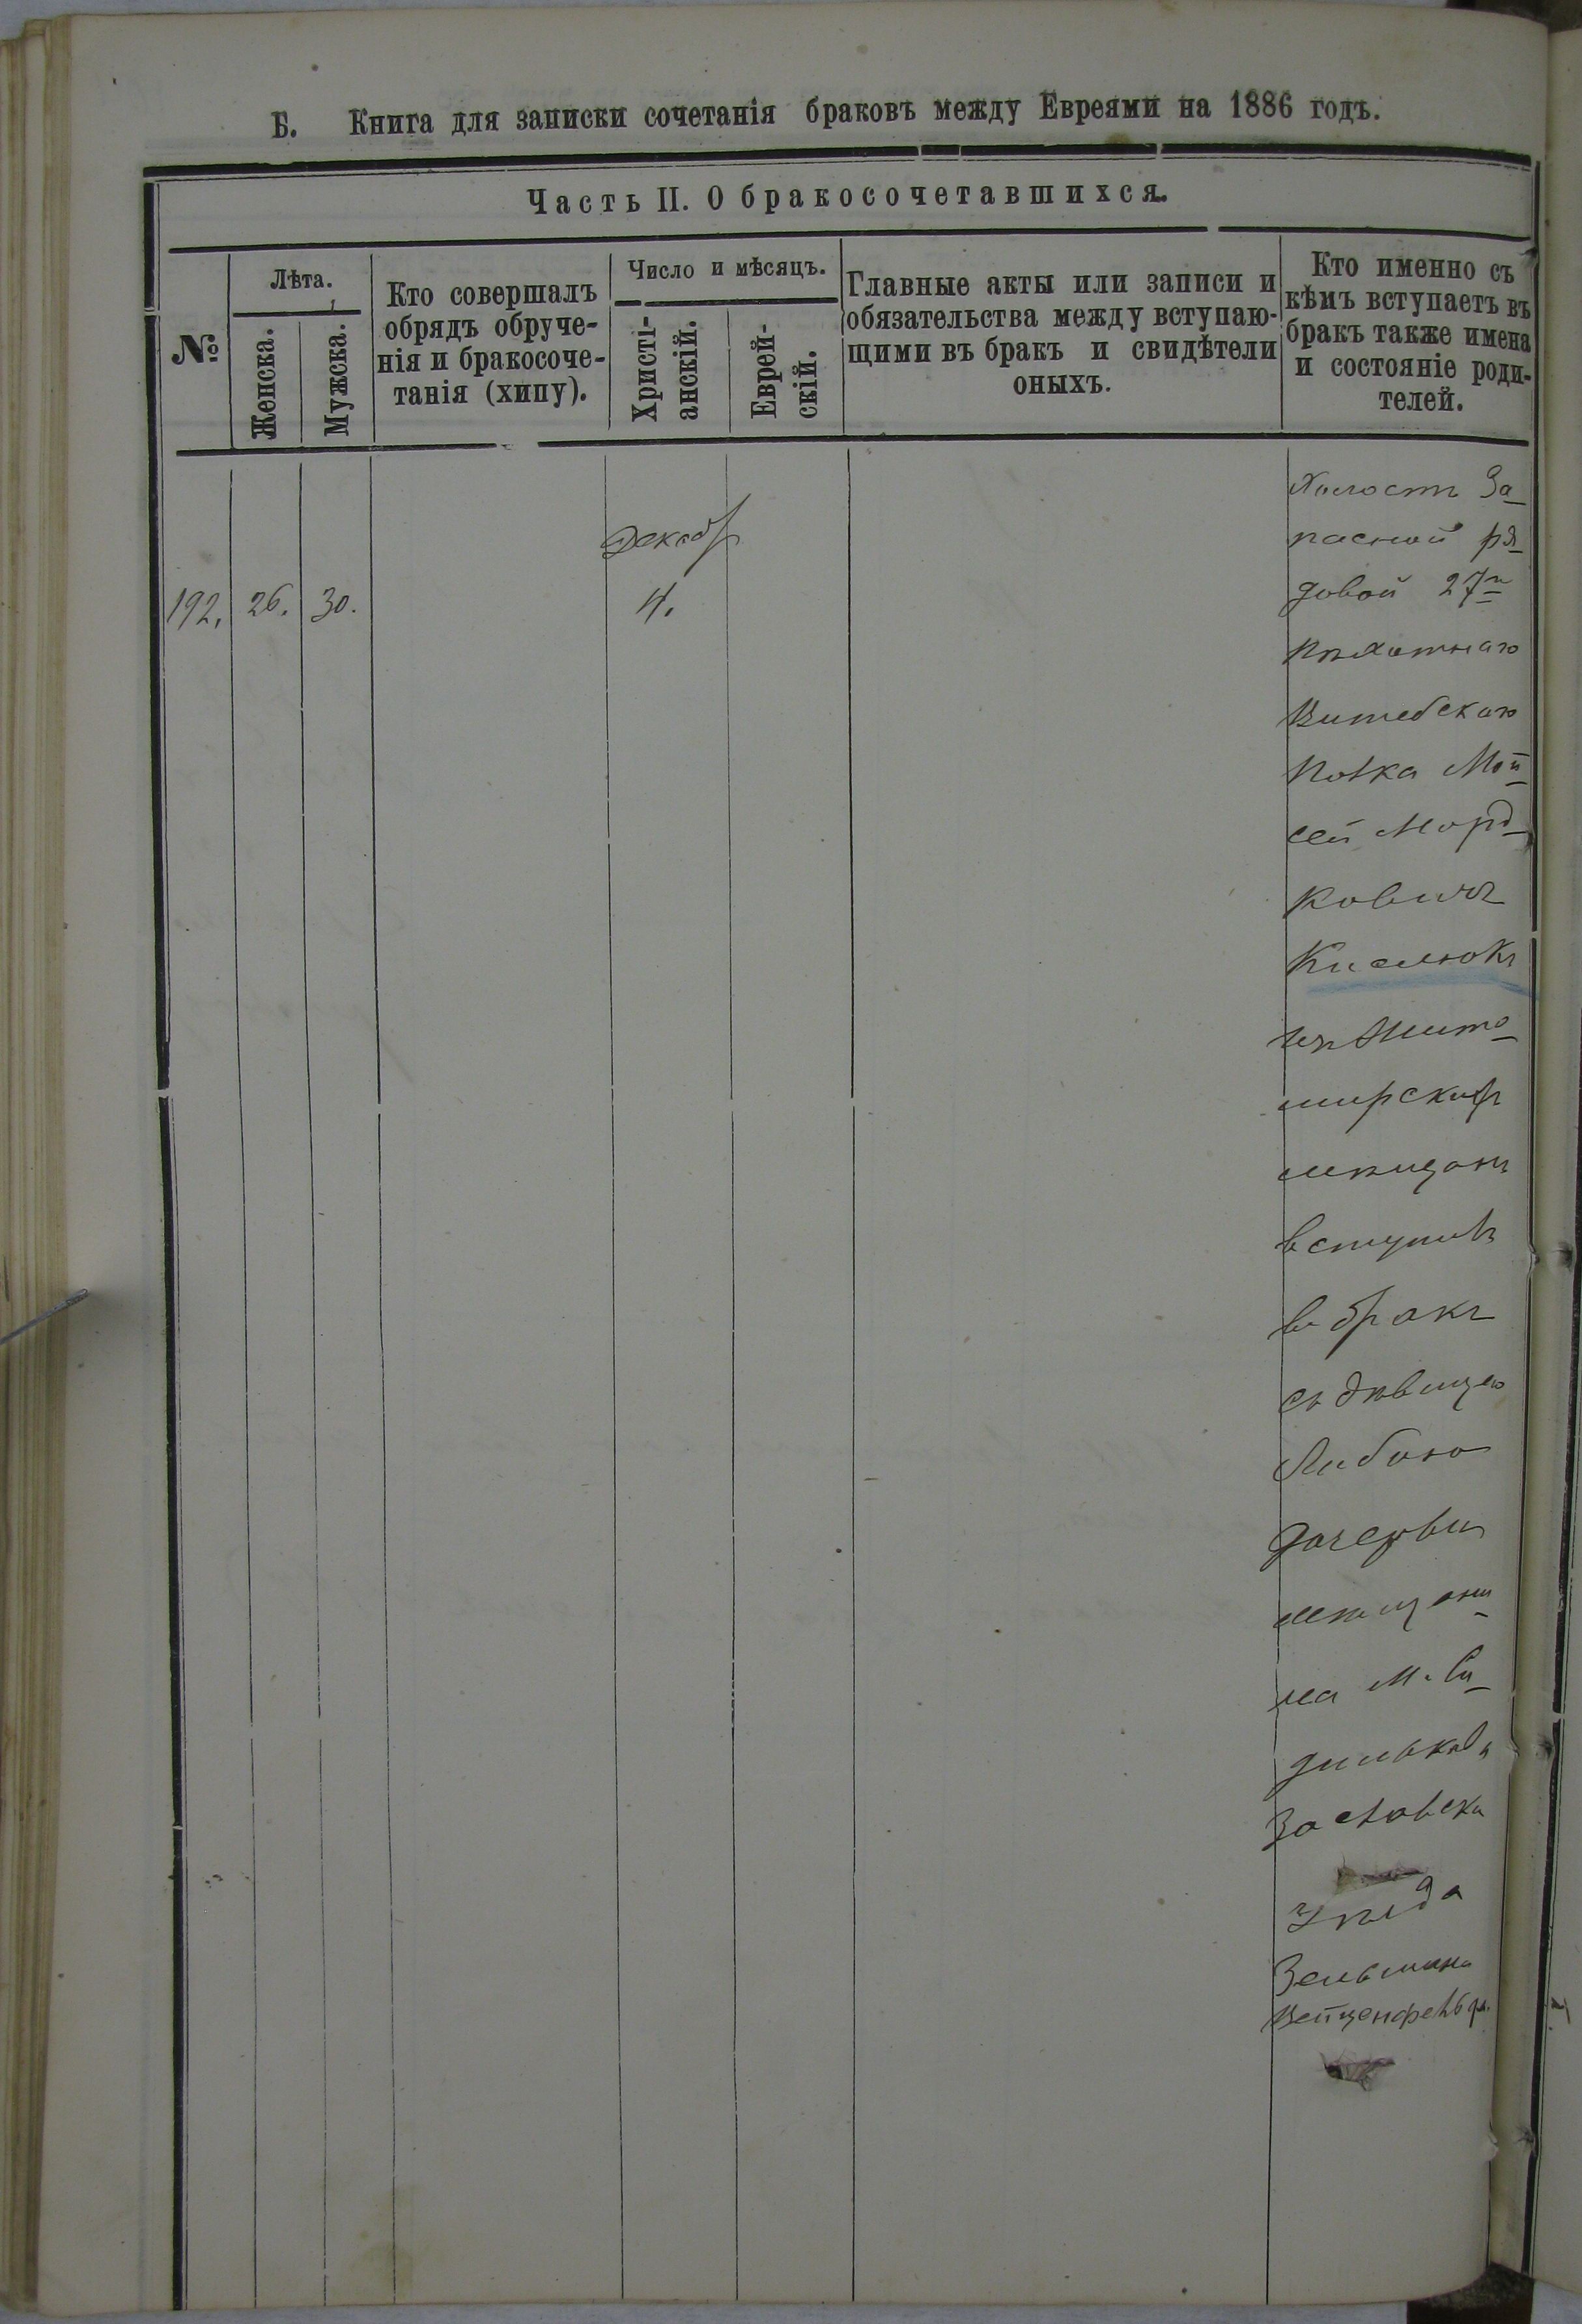 Б. Книга для записки сочетанія браковъ между Евреями на 1886 годъ.
Часть II. О бракосочетавшихся.
№
Лѣта.
Женска.
Мужска.
Кто совершалъ
обрядъ обруче-
нія и бракосоче-
танія (хипу).
Число и мѣсяцъ.
Христі-
анскій.
Еврей-
скій.
Главные акты или записи и
обязательства между вступаю-
щими въ бракъ и свидѣтели
оныхъ.
Кто именно съ
кѣмъ вступаетъ въ
бракъ также имена
и состояніе роди-
телей.
Декабр
192. 26. 30. 4.
Холостъ За
пасной ря
довой 27го
Пѣхотнаго
Витебскаго
Полка Мой
сей Морд
ковичъ
Кислюкъ
изъ Жито
мирскихъ
мѣщанъ
вступилъ
въ бракъ
съ дѣвицею
Либою
дочерью
мѣщани
на м. Су
дилкова
Заславска
Зельмана
Вейценфельда.